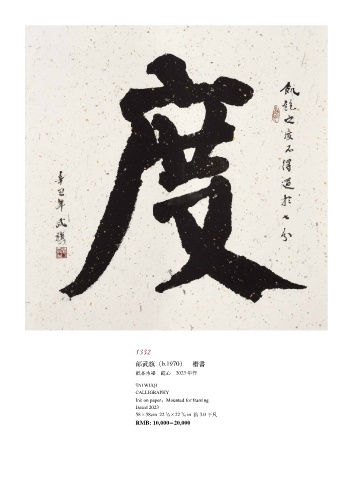 度
飢飽之度不得過於七分
辛丑年 武旗
1332
邰武旗（b.1970） 楷書
紙本水墨 鏡心 2023年作
TAI WUQI
CALLIGRAPHY
Ink on paper; Mounted for framing
Dated 2023
58×58cm 22 ⅞×22 ⅞ in 約 3.0 平尺
RMB: 10,000－20,000